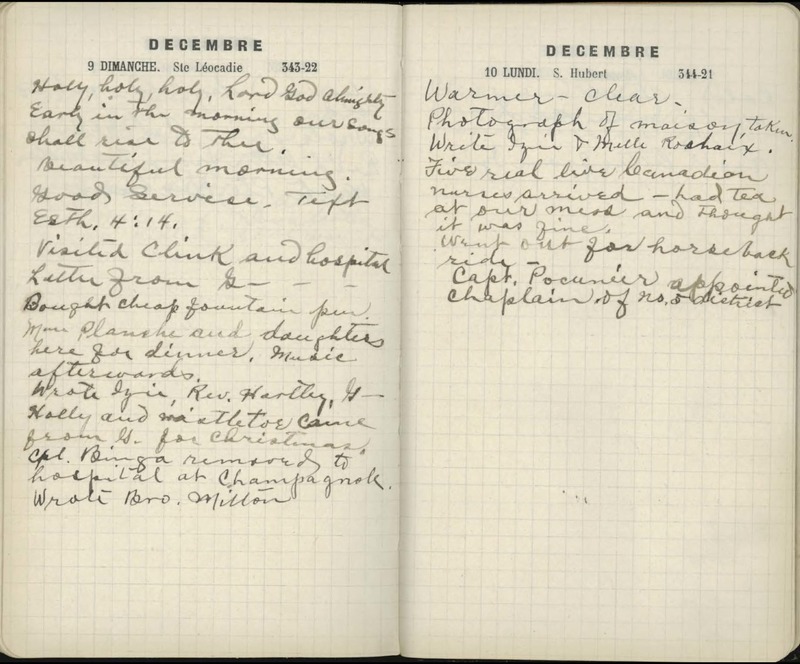 DECEMBRE
9 DIMANCHE. Ste Léocadie 343-22
Holy, holy, holy, Lord God Almighty
Early in the morning our songs
shall rise to Thee.
Beautiful morning.
Good Service. Text
Esth. 4:14.
Visited Clink and hospital
Letter from G— - -
Bought cheap fountain pen.
Mme Planche and daughters
here for dinner. Music
afterwards.
Wrote Izie, Rev. Hartley, G—
Holly and mistletoe came
from G. for Christmas.
Cpl. Binga removed to
hospital at Champagnole.
Wrote Bro. Milton
DECEMBRE
10 LUNDI. S. Hubert 344-21
Warmer - clear -
Photograph of maison taken.
Write Izie & Mlle
Five real live Canadian
nurses arrived - had tea
at our mess and thought
it was fine.
Went out for horseback
ride -
Capt. appointed
Chaplain of no. 5 district